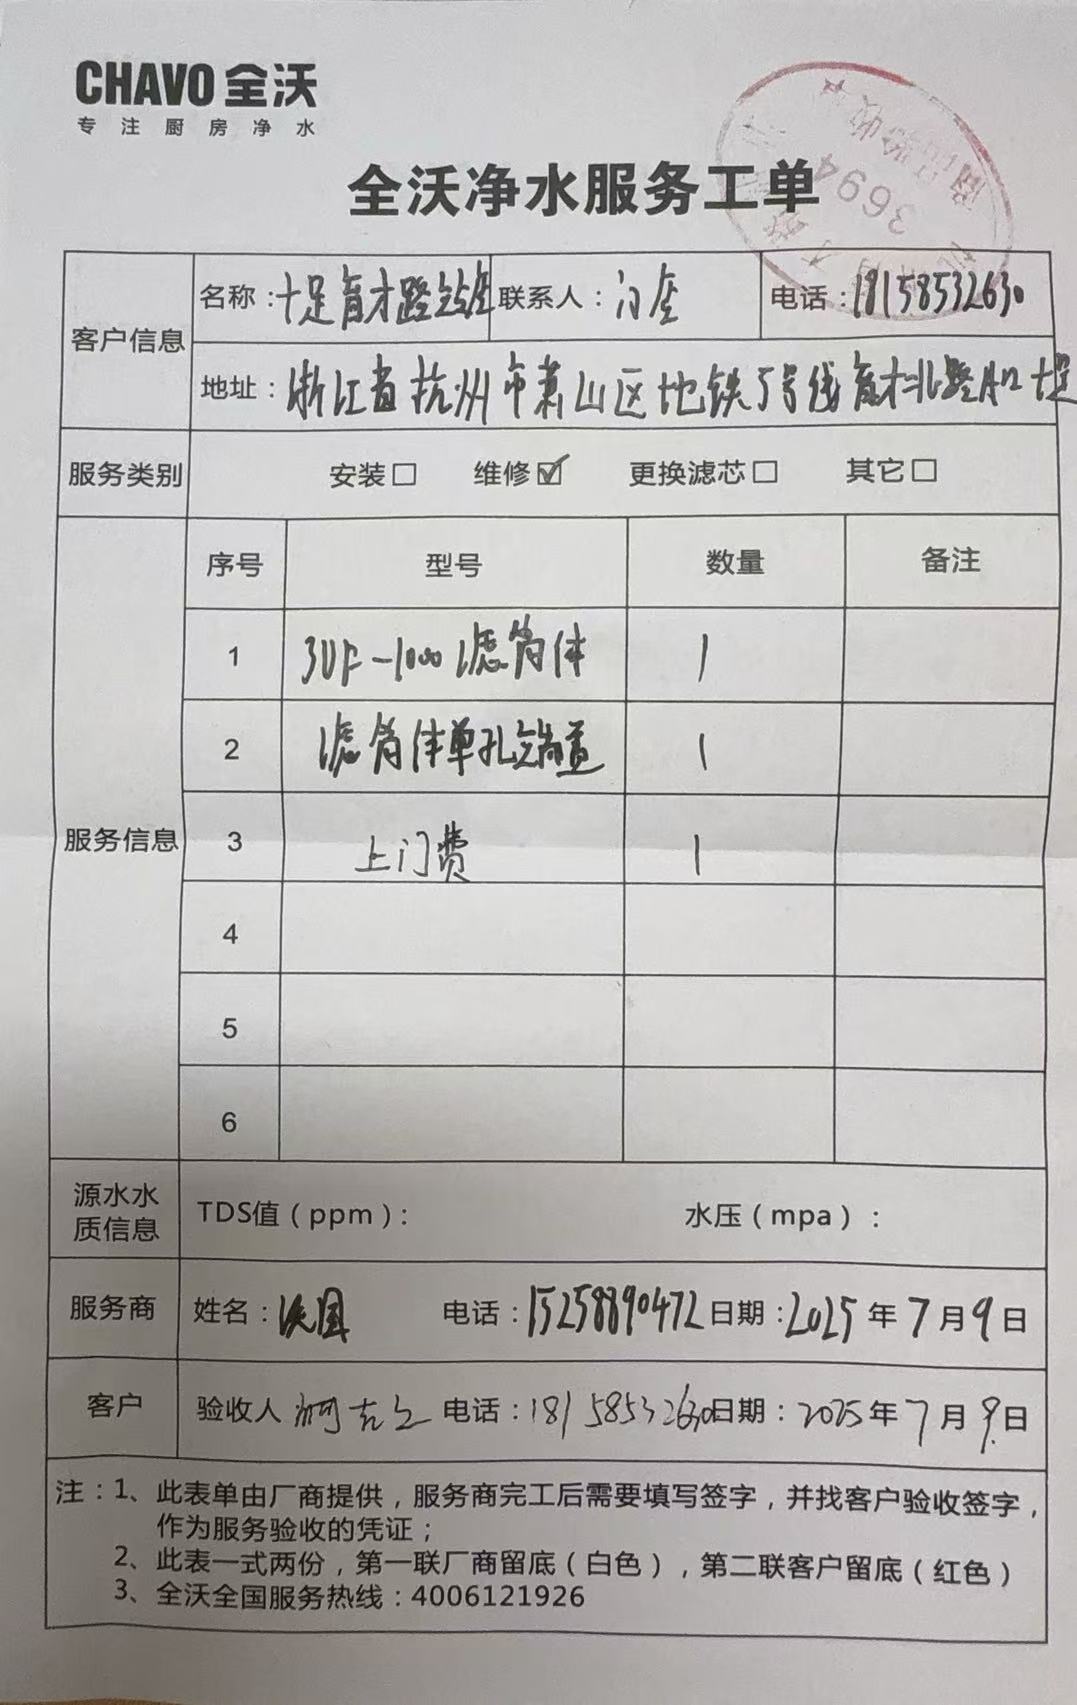 CHAVO 全沃
专注厨房净水
全沃净水服务工单
商品验收
3694
客户信息
名称：十足育才路 联系人： 电话：18158532630
地址：浙江省杭州市萧山区地铁5号线育才北路A口十足
服务类别 安装□ 维修☑ 更换滤芯□ 其它□
服务信息
序号 型号 数量 备注
1 3UF-1000滤筒体 1
2 滤筒体单孔 1
3 上门费 1
4
5
6
源水水质信息 TDS值（ppm）： 水压（mpa）：
服务商 姓名： 电话：15258890472 日期：2025年7月9日
客户 验收人 电话：18158532630 日期：2025年7月9日
注：1、此表单由厂商提供，服务商完工后需要填写签字，并找客户验收签字，
作为服务验收的凭证；
2、此表一式两份，第一联厂商留底（白色），第二联客户留底（红色）
3、全沃全国服务热线：4006121926